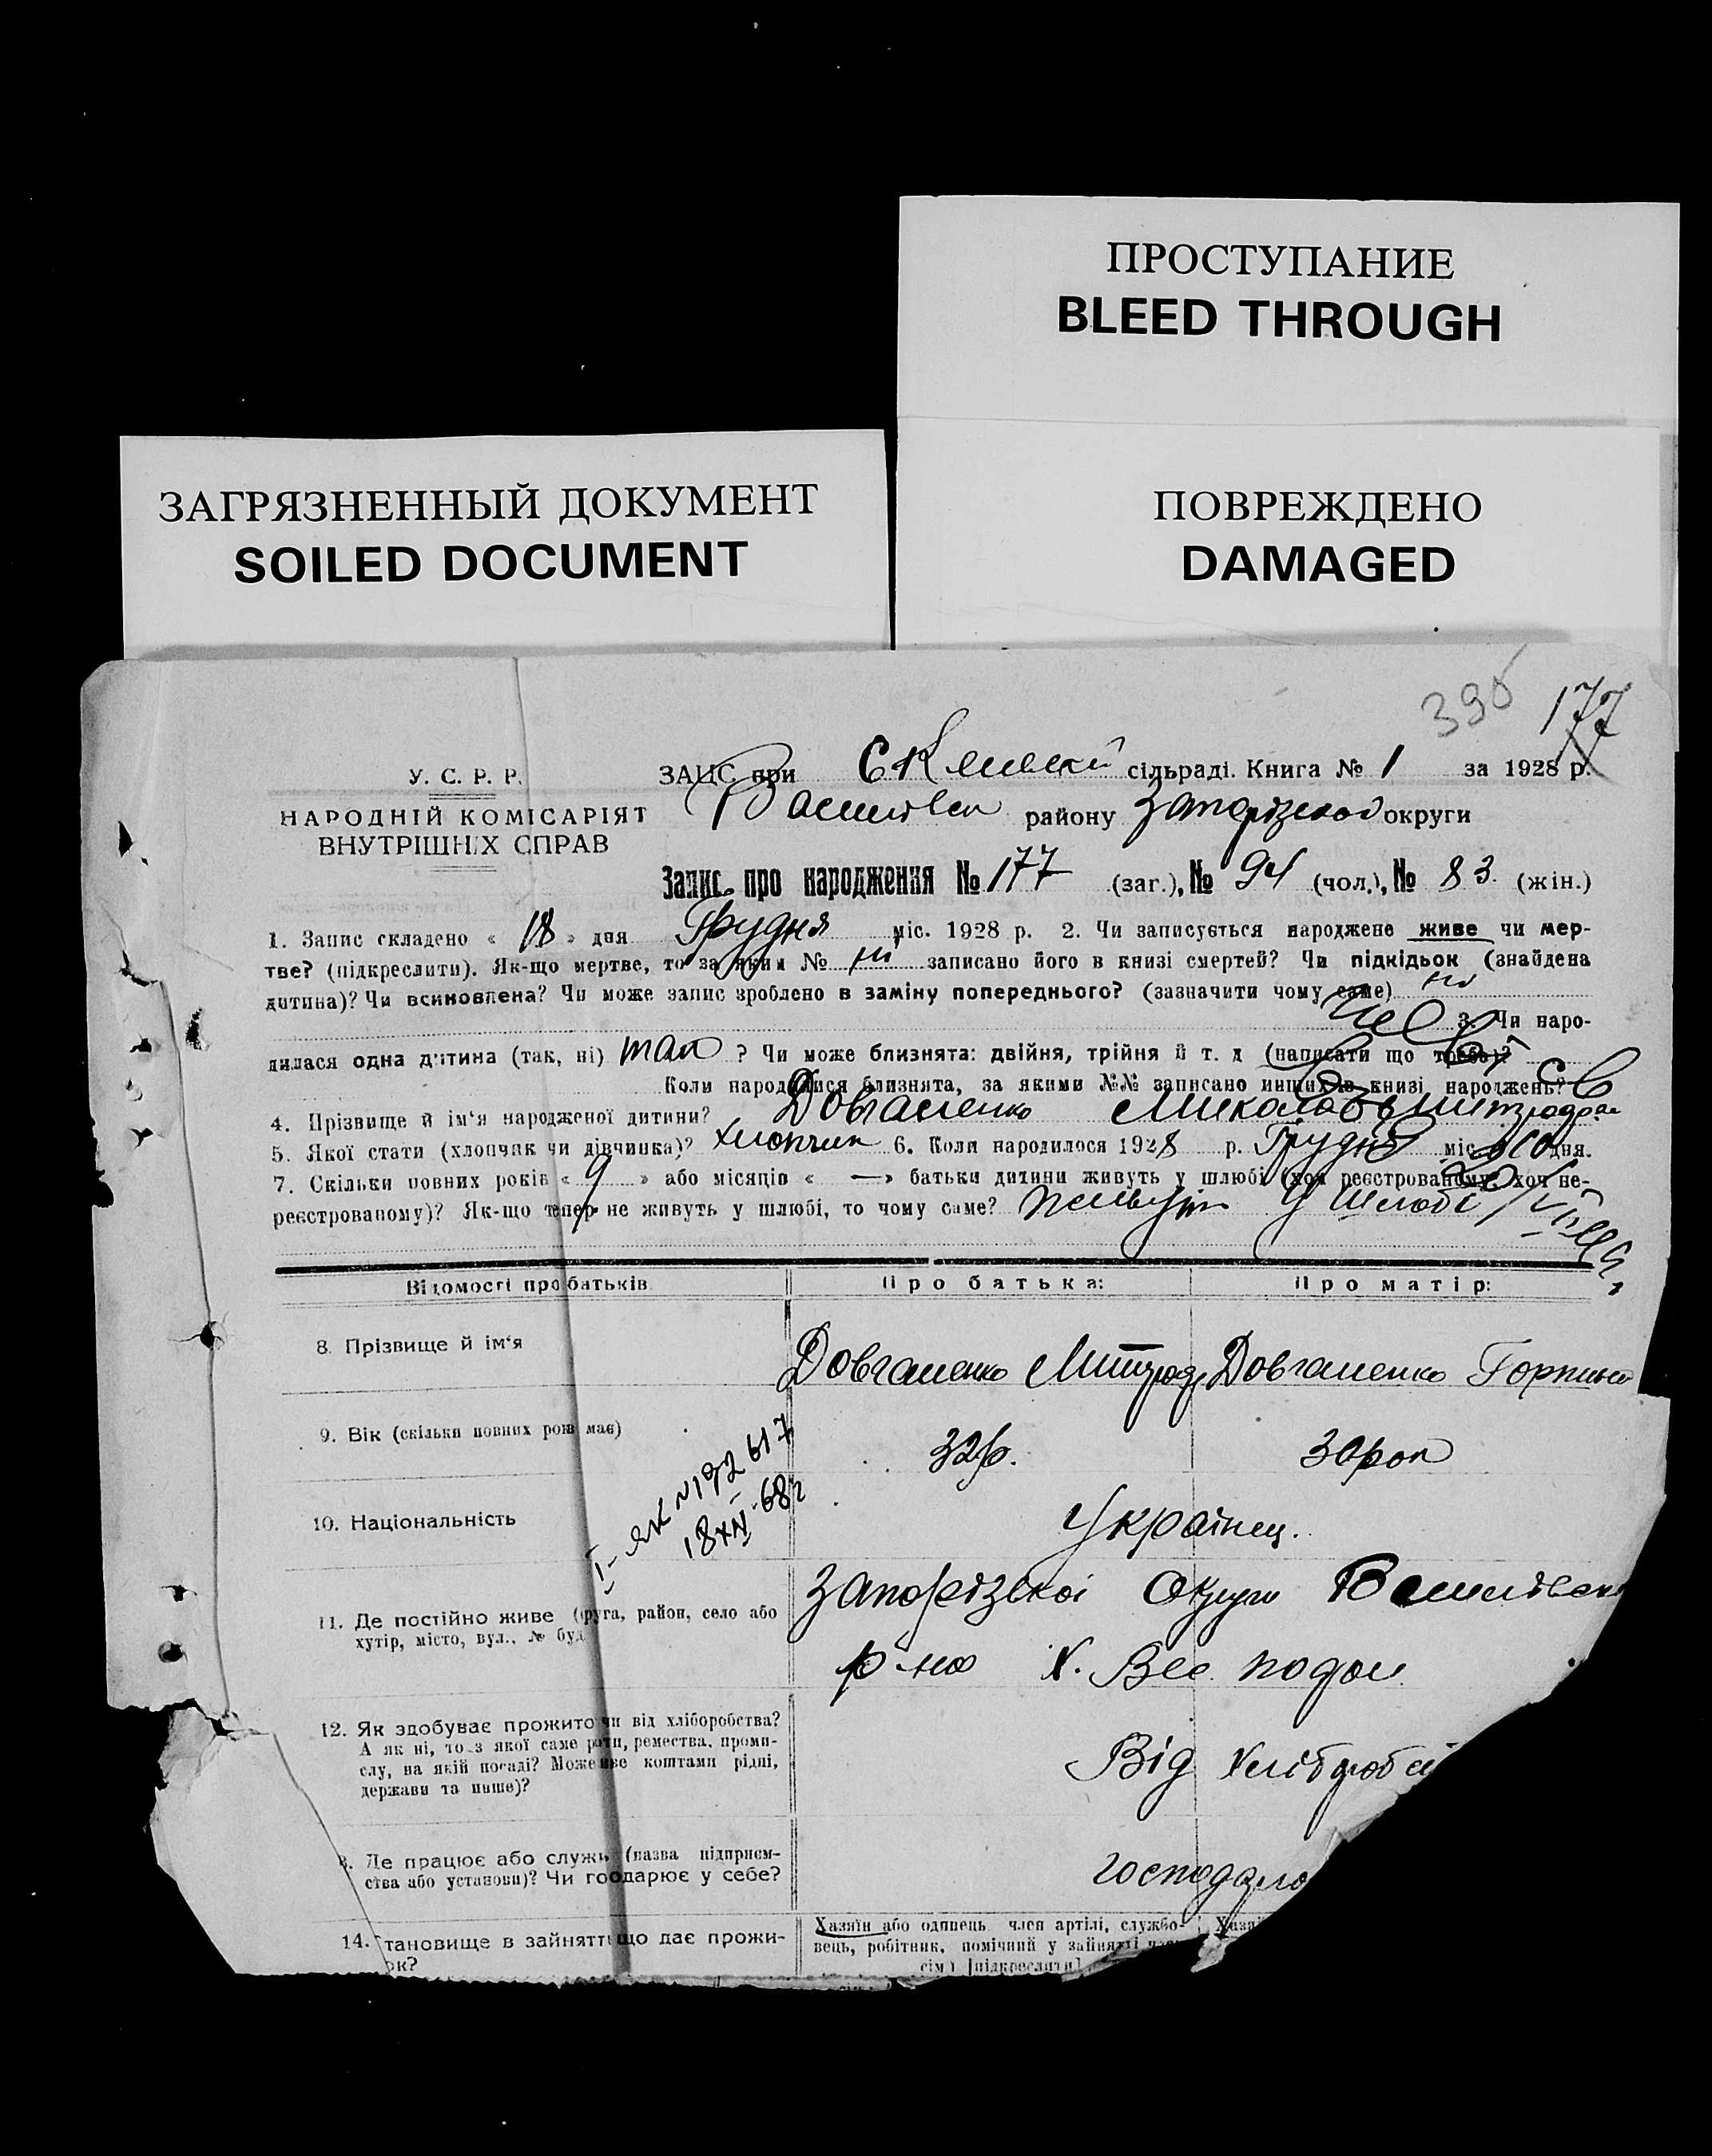 ПРОСТУПАНИЕ
BLEED THROUGH
ЗАГРЯЗНЕННЫЙ ДОКУМЕНТ
SOILED DOCUMENT
ПОВРЕЖДЕНО
DAMAGED
177
У. С. Р. Р.
НАРОДНІЙ КОМІСАРІЯТ
ВНУТРІШНІХ СПРАВ
ЗАЦС при сільраді. Книга № 1 за 1928 р.
району Запорізької округи
Запис про народження № 177 (заг.), № 94 (чол.), № 83 (жін.)
1. Запис складено « 18 » дня Грудня міс. 1928 р. 2. Чи записується народжене живе чи мер-
тве? (підкреслити). Як-що мертве, то за яким № ні записано його в книзі смертей? Чи підкідьок (знайдена
дитина)? Чи всиновлена? Чи може запис зроблено в заміну попереднього? (зазначити чому саме) ні
3. Чи наро-
дилася одна дитина (так, ні) так ? Чи може близнята: двійня, трійня й т. д (написати що треба)?
Коли народилися близнята, за якими №№ записано инших в книзі народжень?
4. Прізвище й ім'я народженої дитини? Довгаленко Микола
5. Якої стати (хлопчик чи дівчинка)? хлопчик 6. Коли народилося 1928 р. Грудня міс. дня.
7. Скільки повних років « 9 » або місяців « — » батьки дитини живуть у шлюбі (хоч реєстрованому, хоч не-
реєстрованому)? Як-що тепер не живуть у шлюбі, то чому саме? живуть у шлюбі
Відомості про батьків
Про батька:
Про матір:
8. Прізвище й ім'я
Довгаленко Митрод Довгаленко Горпина
9. Вік (скільки повних років має)
32 р. 30 рок
192617
18 XII 68 г
10. Національність
Українец.
11. Де постійно живе (округа, район, село або
хутір, місто, вул., № буд.
Запорізької Округи Василівськ
р-на х. Вес. подол.
12. Як здобуває прожиток чи від хліборобства?
А як ні, то з якої саме роботи, ремества, проми-
слу, на якій посаді? Може живе коштами рідні,
держави та инше)?
Від хліборобс
Де працює або служить (назва підприєм-
ства або установи)? Чи господарює у себе?
господар
14. Становище в зайнятті що дає прожи-
ок?
Хазяїн або одинець, член артілі, службо-
вець, робітник, помічний у зайнятті
сім'ї [підкреслити]